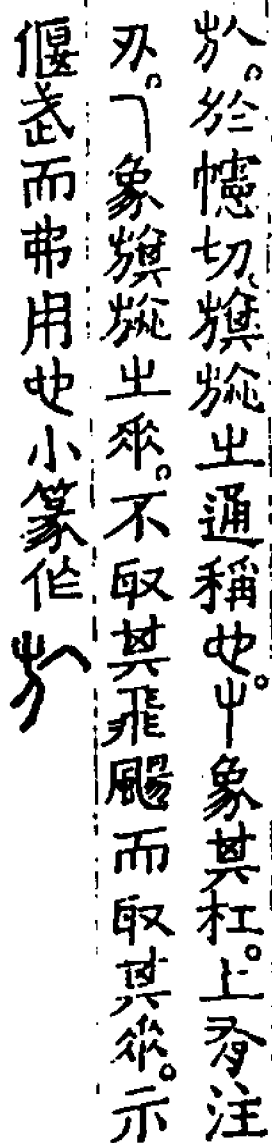 㫃。於幰切旗旒㞢通稱也。屮象其杠。上有注
刃。𠃌象旗旒㞢𠂹。不取其飛颺而取其𠂹。示
偃武而弗用也小篆作㫃